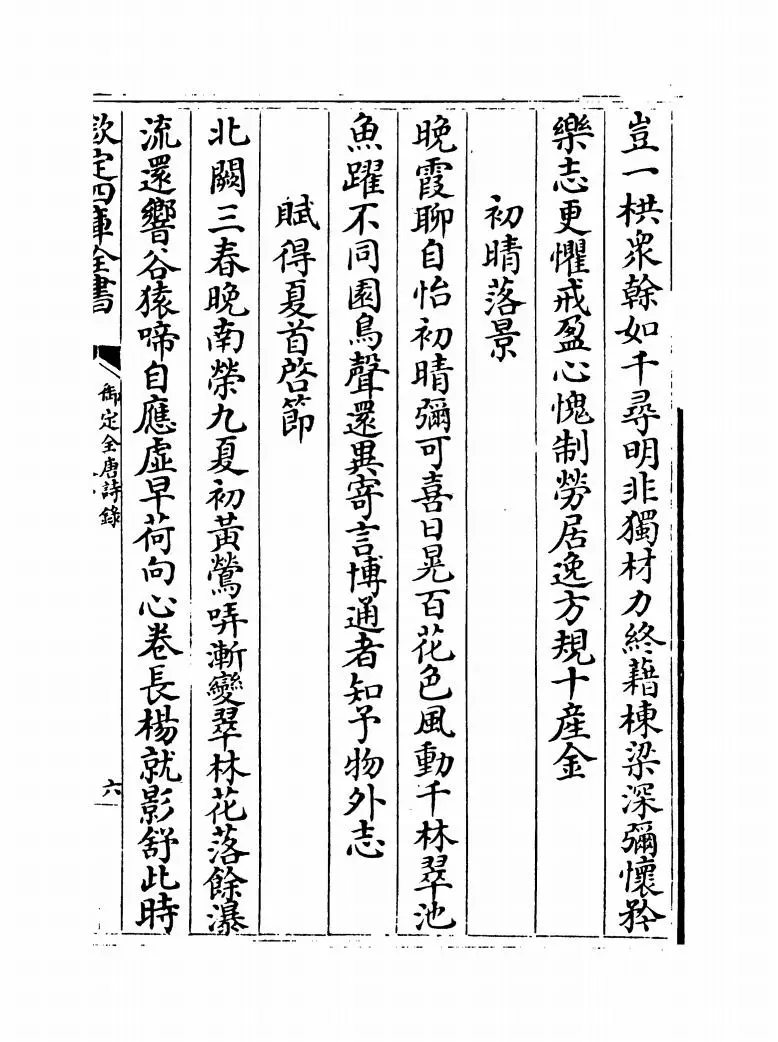 豈一栱衆榦如千尋明非獨材力終藉棟梁深彌懷矜
樂志更懼戒盈心愧制勞居逸方規十産金
初晴落景
晚霞聊自怡初晴彌可喜日晃百花色風動千林翠池
魚躍不同園鳥聲還異寄言博通者知予物外志
賦得夏首啓節
北闕三春晚南榮九夏初黃鶯哢漸變翠林花落餘瀑
流還響谷猿啼自應虛早荷向心卷長楊就影舒此時
欽定四庫全書
御定全唐詩錄
六